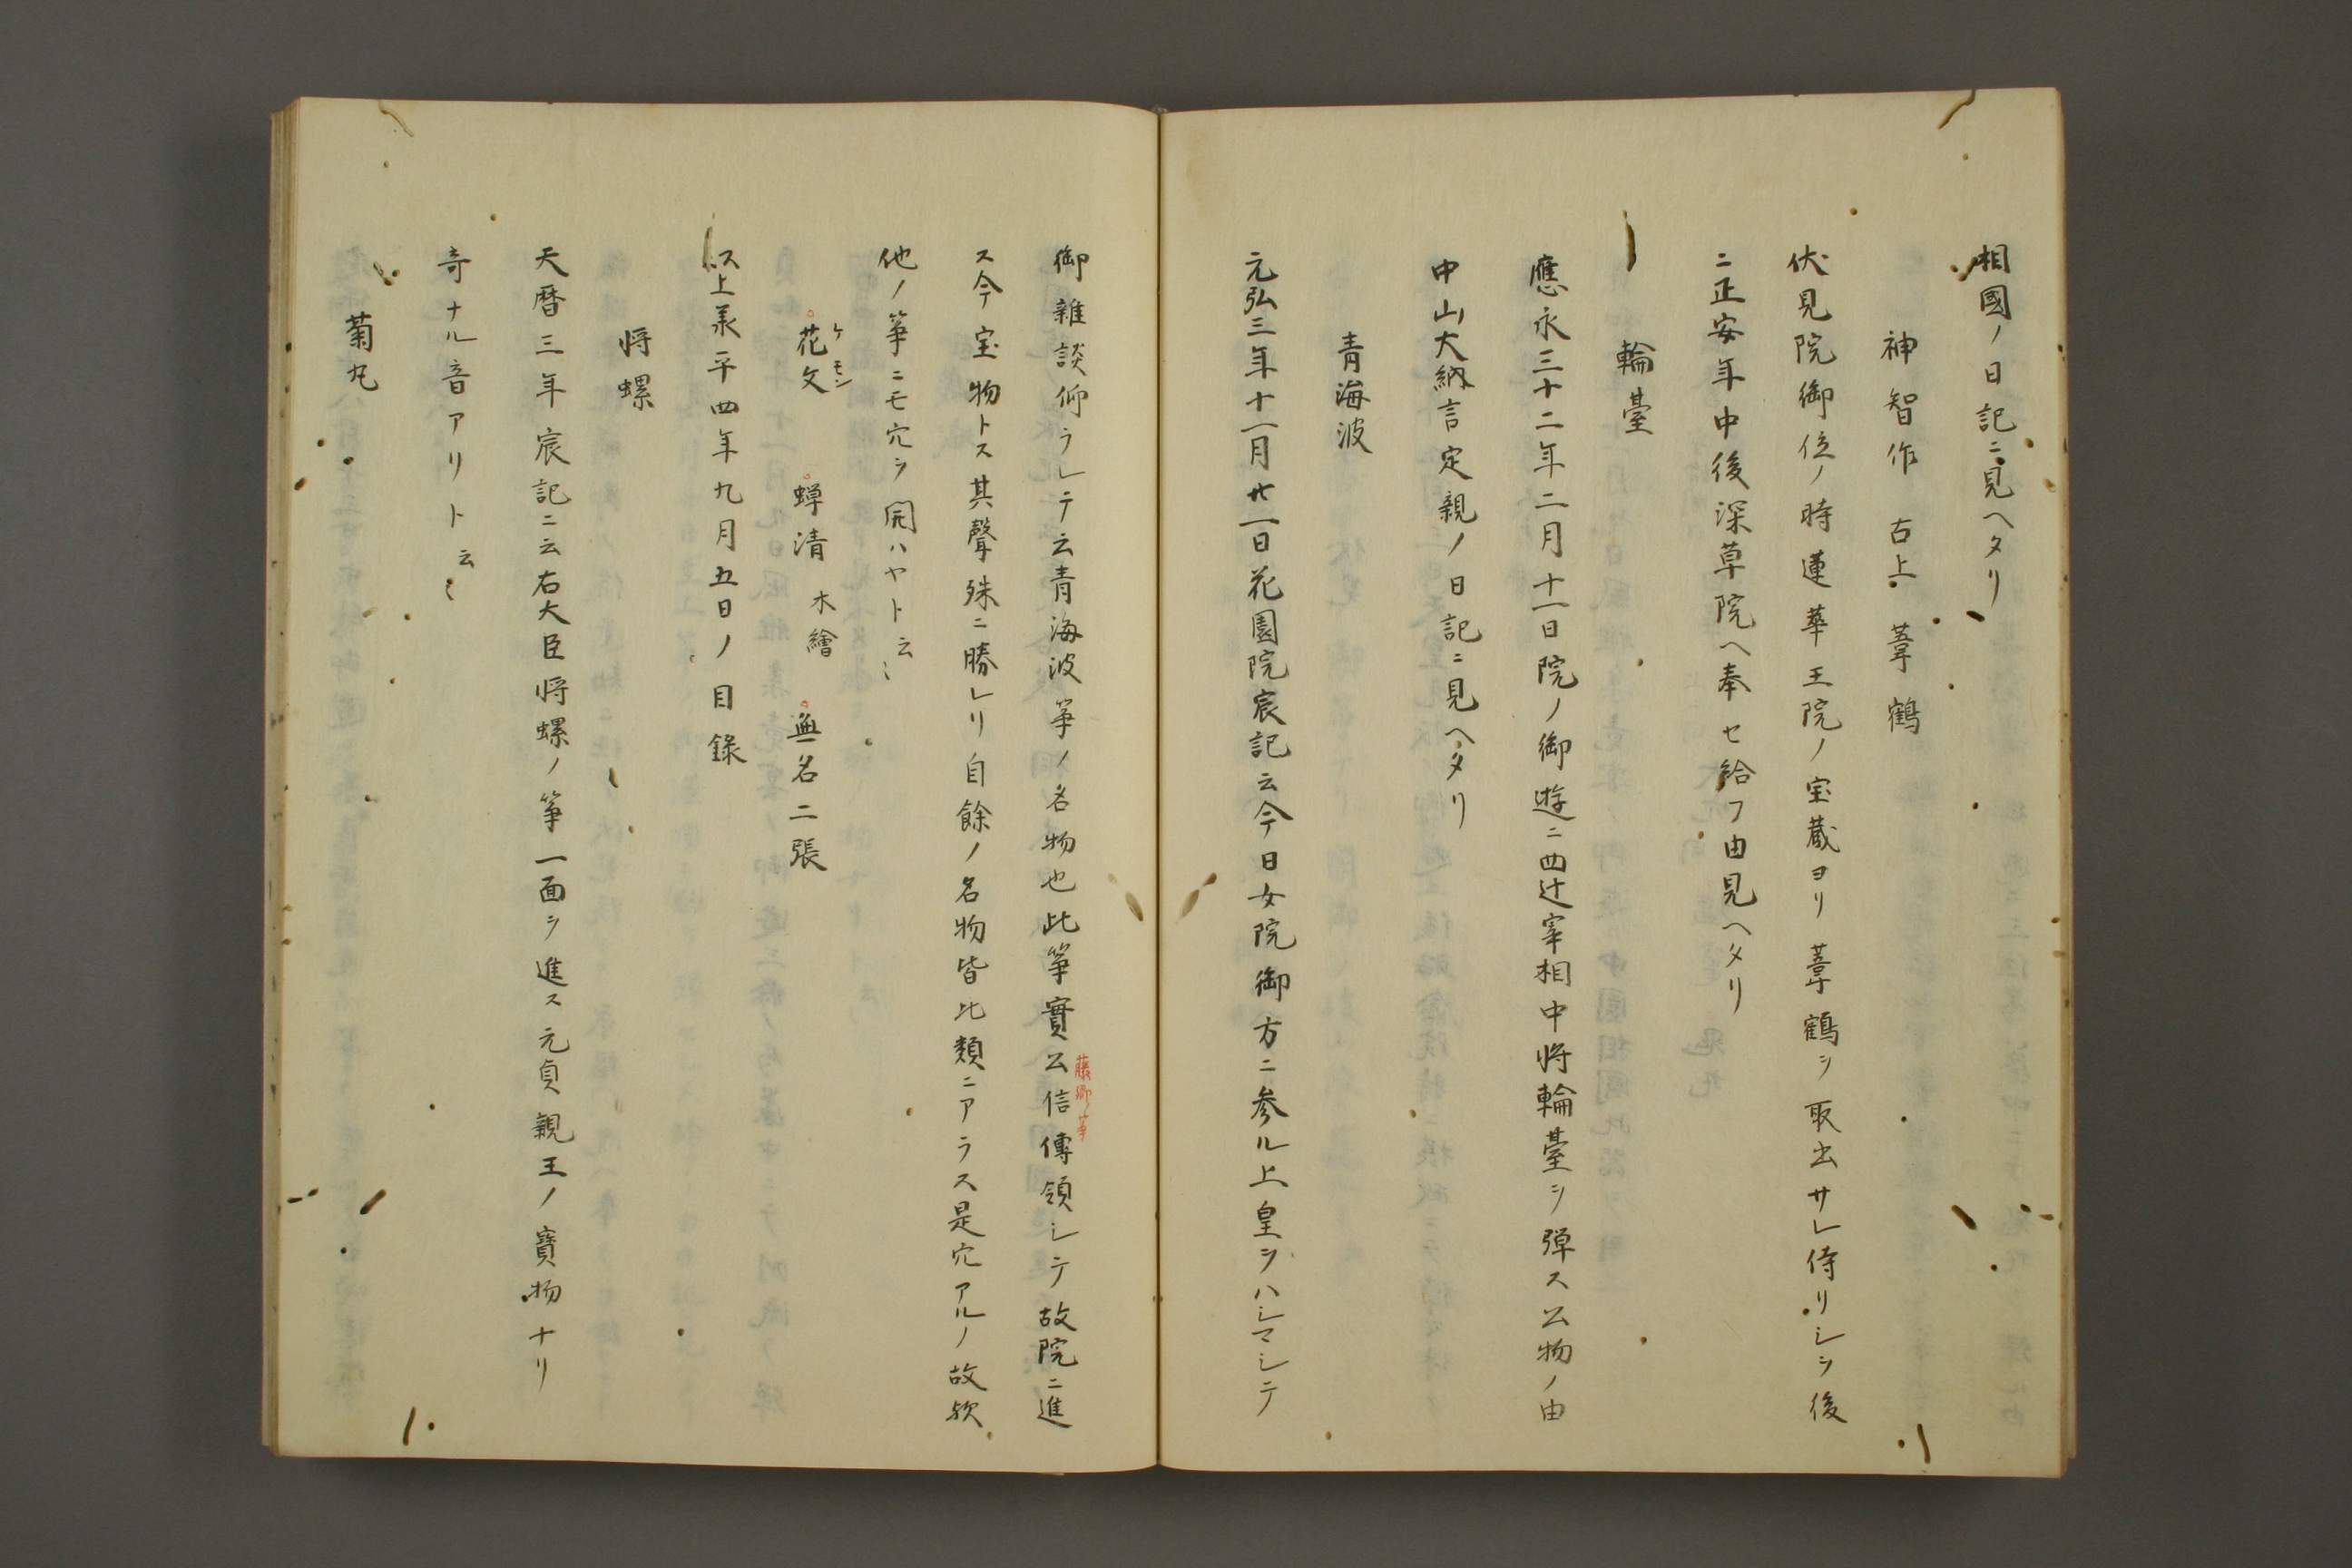 相國ノ日記ニ見ヘタリ
神智作 右上 葦鶴
伏見院御位ノ時蓮華王院ノ宝蔵ヨリ葦鶴ヲ取出サレ侍リシヲ後
ニ正安年中後深草院ヘ奉セ給フ由見ヘタリ
輪臺
應永三十二年二月十一日院ノ御遊ニ四辻宰相中将輪臺ヲ弾ス公物ノ由
中山大納言定親ノ日記ニ見ヘタリ
青海波
元弘三年十一月廿一日花園院宸記云今日女院御方ニ参ル上皇ヲハシマシテ
御雜談仰ラレテ云青海波箏ノ名物也此箏實公信傳領シテ故院ニ進
藤郷ノ箏
ス今宝物トス其聲殊ニ勝レリ自餘ノ名物皆比類ニアラス是穴アルノ故欤
他ノ箏ニモ穴ヲ開ハヤト云〻
花文 蝉清 木繪 無名二張
ケモン
以上美平四年九月五日ノ目錄
将螺
天暦三年宸記ニ云右大臣将螺ノ箏一面ヲ進ス元貞親王ノ寶物ナリ
奇ナル音アリト云〻
菊丸